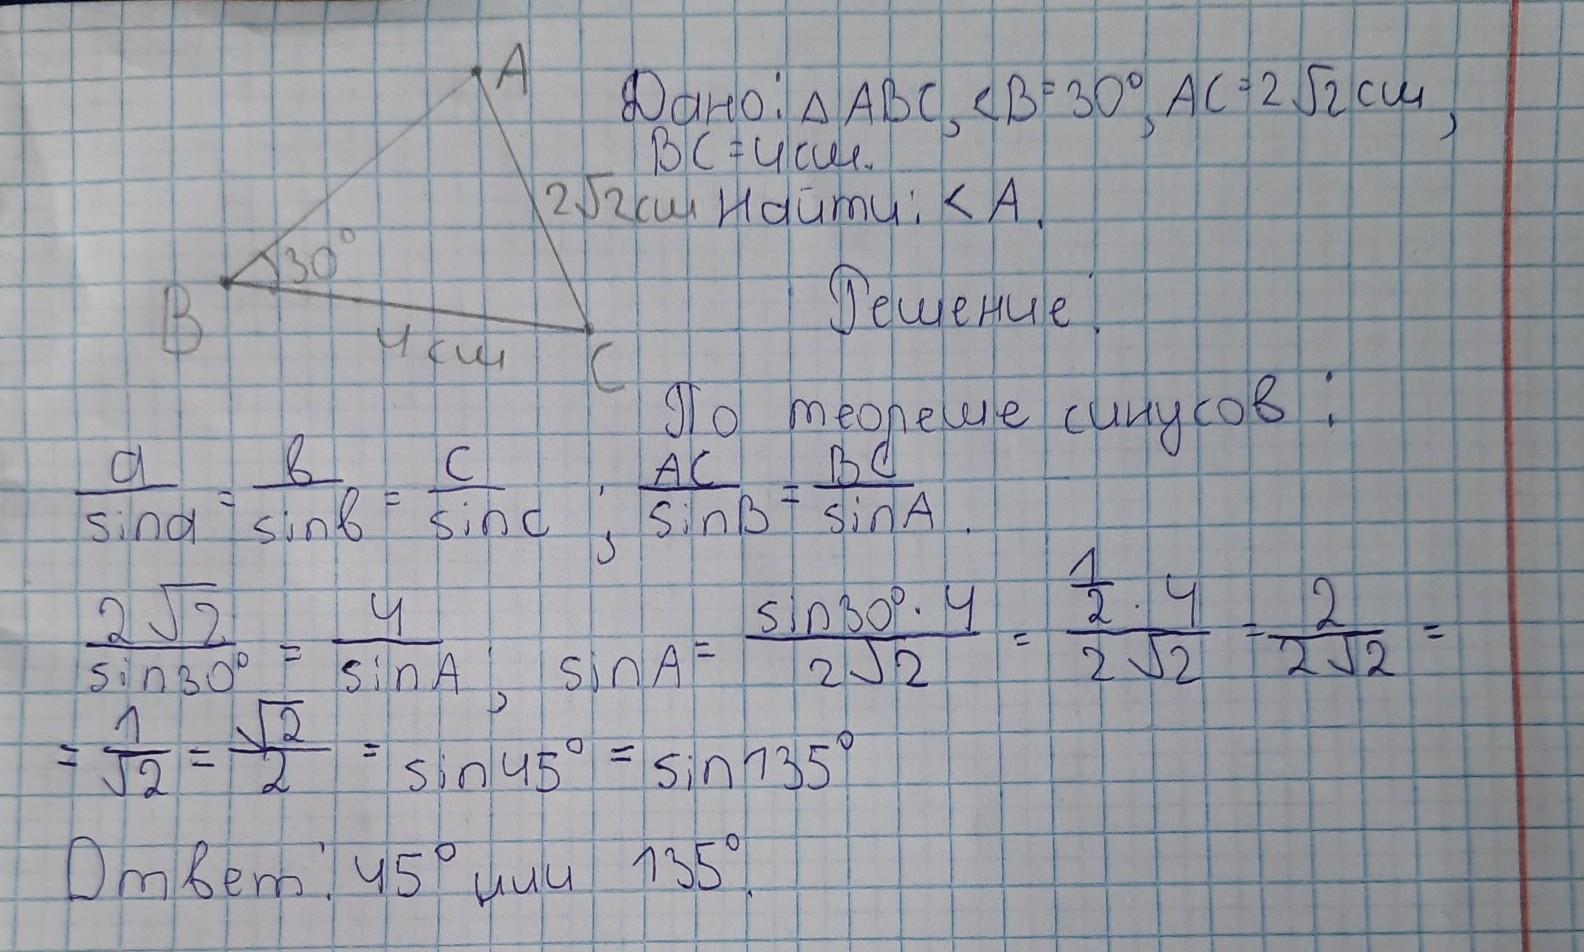 A
Дано: △ ABC, <B=30°, AC=2√2 см,
BC=4см.
2√2см Найти: < A.
30°
B
4 см
C
Решение:
По теореме синусов:
a/sina = b/sinb = c/sinc ; AC/sinB = BC/sinA.
2√2/sin30° = 4/sinA; sinA= sin30°·4/2√2 = 1/2·4/2√2 = 2/2√2 =
= 1/√2 = √2/2 = sin45° = sin135°
Ответ: 45° или 135°.